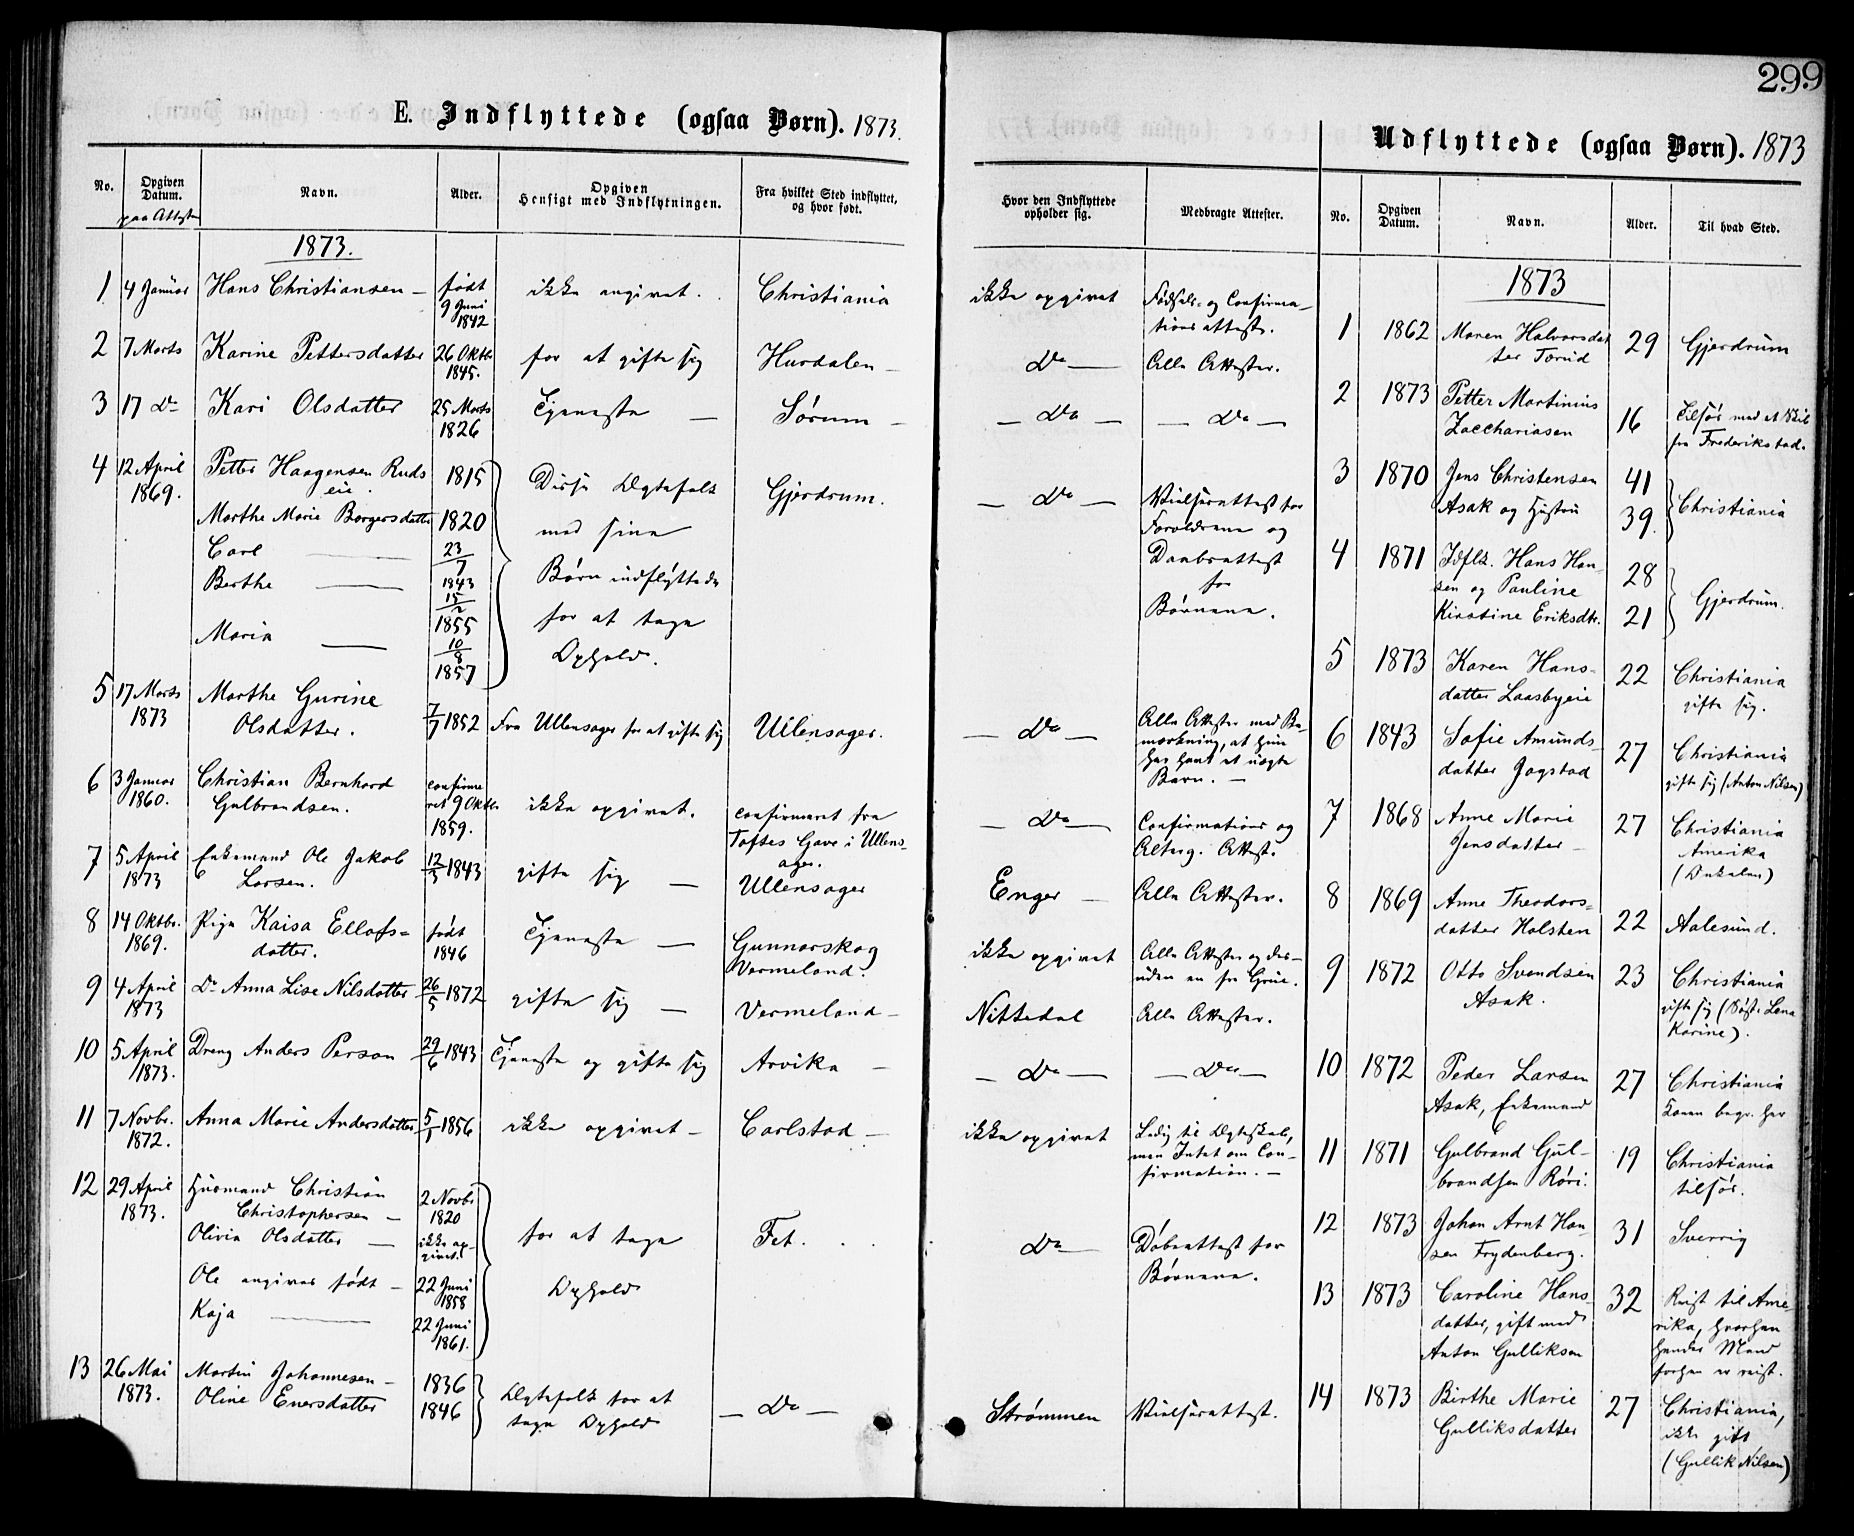 299
E. Indflyttede (ogsaa Børn). 1873.
No.
Opgiven Datum. paa Attesten
Navn.
Alder.
Opgiven Hensigt med Indflytningen.
Fra hvilket Sted indflyttet, og hvor født.
Hvor den Indflyttede opholder sig.
Medbragte Attester.
1873.
1 4 Januar Hans Christiansen – født 9 Juni 1842 ikke angivet. Christiania ikke opgivet Fødsels- og Confirma-
tions attest.
2 7 Marts Karine Pettersdatter 26 Oktbr 1845. for at gifte sig Hurdalen – Do – Alle Attester.
3 17 Do Kari Olsdatter 25 Marts 1826 Tjeneste – Sørum – Do – Do –
4 12 April 1869. Petter Haagensen Ruds
eie. 1815 Disse Ægtefolk Gjerdrum. – Do – Vielsesattest for
Marthe Marie Borgersdatter 1820 med sine Forældrene og
Carl — 23/7 1843 Børn indflyttede Daabsattest
Berthe — 15/2 1855 for at tage for
Maria — 10/8 1857 Ophold. Børnene.
5 17 Marts 1873 Marthe Gurine
Olsdatter. 7/7 1852 Fra Ullensager for at gifte sig Ullensager. – Do – Alle Attester med Be-
mærkning, at hun
har havt et uægte
Barn. –
6 3 Januar 1860. Christian Bernhard
Gulbrandsen. confirme
ret 9 Oktbr
1859. ikke opgivet. confirmeret fra
Toftes Gave i Ullens-
ager. – Do – Confirmations og
Alterg. Attest.
7 5 April 1873 Enkemand Ole Jakob
Larsen. 12/3 1843 gifte sig – Ullensager Enger – Alle Attester.
8 14 Oktbr. 1869. Pige Kaisa Ellofs=
datter. født 1846 Tjeneste – Gunnarskog
Vermeland. ikke opgivet Alle Attester og des-
uden en fra Grue.
9 4 April 1873 Do Anna Lise Nilsdatter 26/5 1872 gifte sig – Vermeland – Nittedal Alle Attester.
10 5 April 1873. Dreng Anders Person 29/6 1843 Tjeneste og gifte sig Arvika – – Do – – Do –
11 7 Novbr. 1872. Anna Marie Andersdatter 5/1 1856 ikke opgivet – Carlstad – ikke opgivet Ledig til Ægteskab,
men Intet om Con-
firmation. –
12 29 April 1873. Husmand Christian
Christophersen – 2 Novbr 1820 for at tage Fet. Do – Døbeattest for
Børnene.
Olivia Olsdatter – ikke op-
givet.
Ole angives født – 22 Juni 1858 Ophold
Kaja — 22 Juni 1861.
13 26 Mai 1873. Martin Johannesen – 1836 Ægtefolk for at – Do – Strømmen Vielsesattest.
Oline Enersdatter 1846 tage Ophold
Udflyttede (ogsaa Børn). 1873
No.
Opgiven Datum.
Navn.
Alder.
Til hvad Sted.
1873
1 1862 Maren Halvorsdat
ter Torud 29 Gjerdrum
2 1873 Petter Martinius
Zacchariasen 16 Tilsøs med et Skib
fra Frederikstad.
3 1870 Jens Christensen 41
Asak og Hustru 39. Christiania
4 1871 Idfls. Hans Han-
sen og Pauline 28
Kirstine Eriksdtr. 21 Gjerdrum.
5 1873 Karen Hans-
datter Laasbyeie 22 Christiania
gifte sig.
6 1843 Sofie Amunds-
datter Jogstad 27 Christiania
gifte sig (Anton Nilsen)
7 1868 Anne Marie
Jensdatter – 27 Christiania
Amerika
8 1869 Anne Theodors=
datter Holsten 22 Aalesund.
9 1872 Otto Svendsen
Asak. 23 Christiania
gifte sig (Lena
Karine).
10 1872 Peder Larsen
Asak, Enkemand 27 Christiania
Konen begr. her
11 1871 Gulbrand Gul-
brandsen Røri. 19 Christiania
tilsøs.
12 1873 Johan Arnt Han-
sen Frydenberg. 31 Sverrig
13 1873 Caroline Hans-
datter, gift med
Anton Gulliksen 32 Reist til Ame-
rika, hvorhen
hendes Mand
forhen er reist.
14 1873 Birthe Marie
Gulliksdatter 27 Christiania,
ikke gift
(Gullik Nilsen)